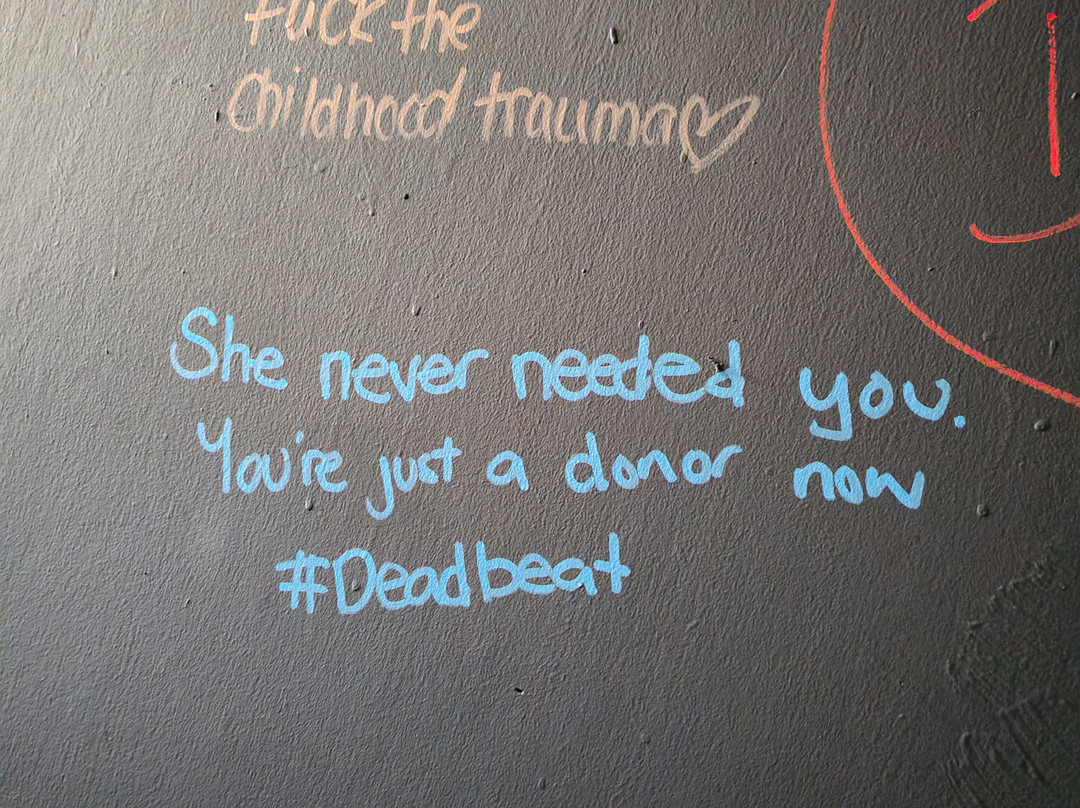 fuck the
Childhood trauma♡
She never needed you.
You're just a donor now
#Deadbeat